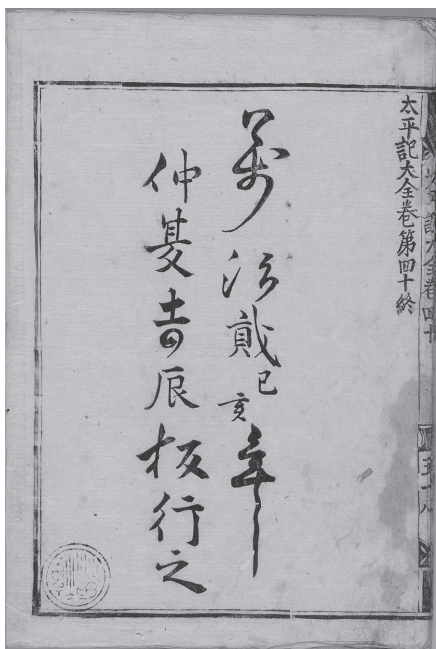 太平記大全卷第四十終
萬治貳己亥年
仲夏吉辰板行之